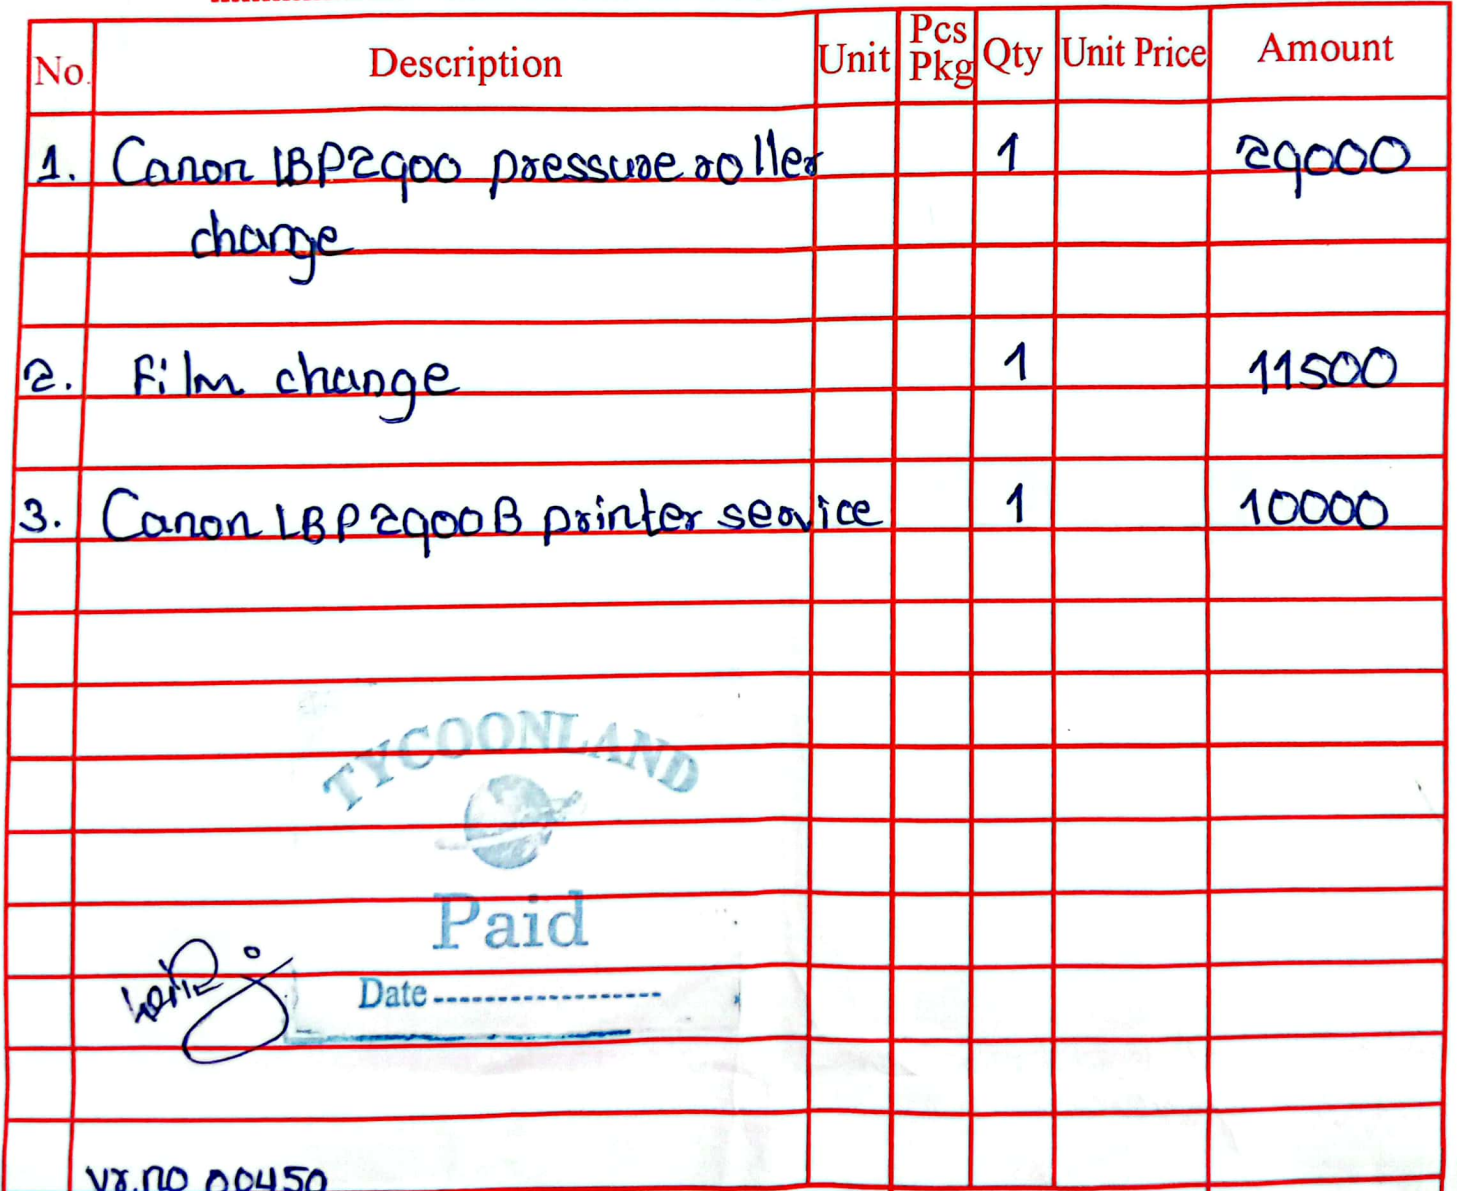 No. Description Unit Pcs Pkg Qty Unit Price Amount
1. Canon LBP2900 pressure roller 1 29000
change
2. Film change 1 11500
3. Canon LBP2900B printer service 1 10000
TYCOONLAND
Paid
Date
Vr.no 00450